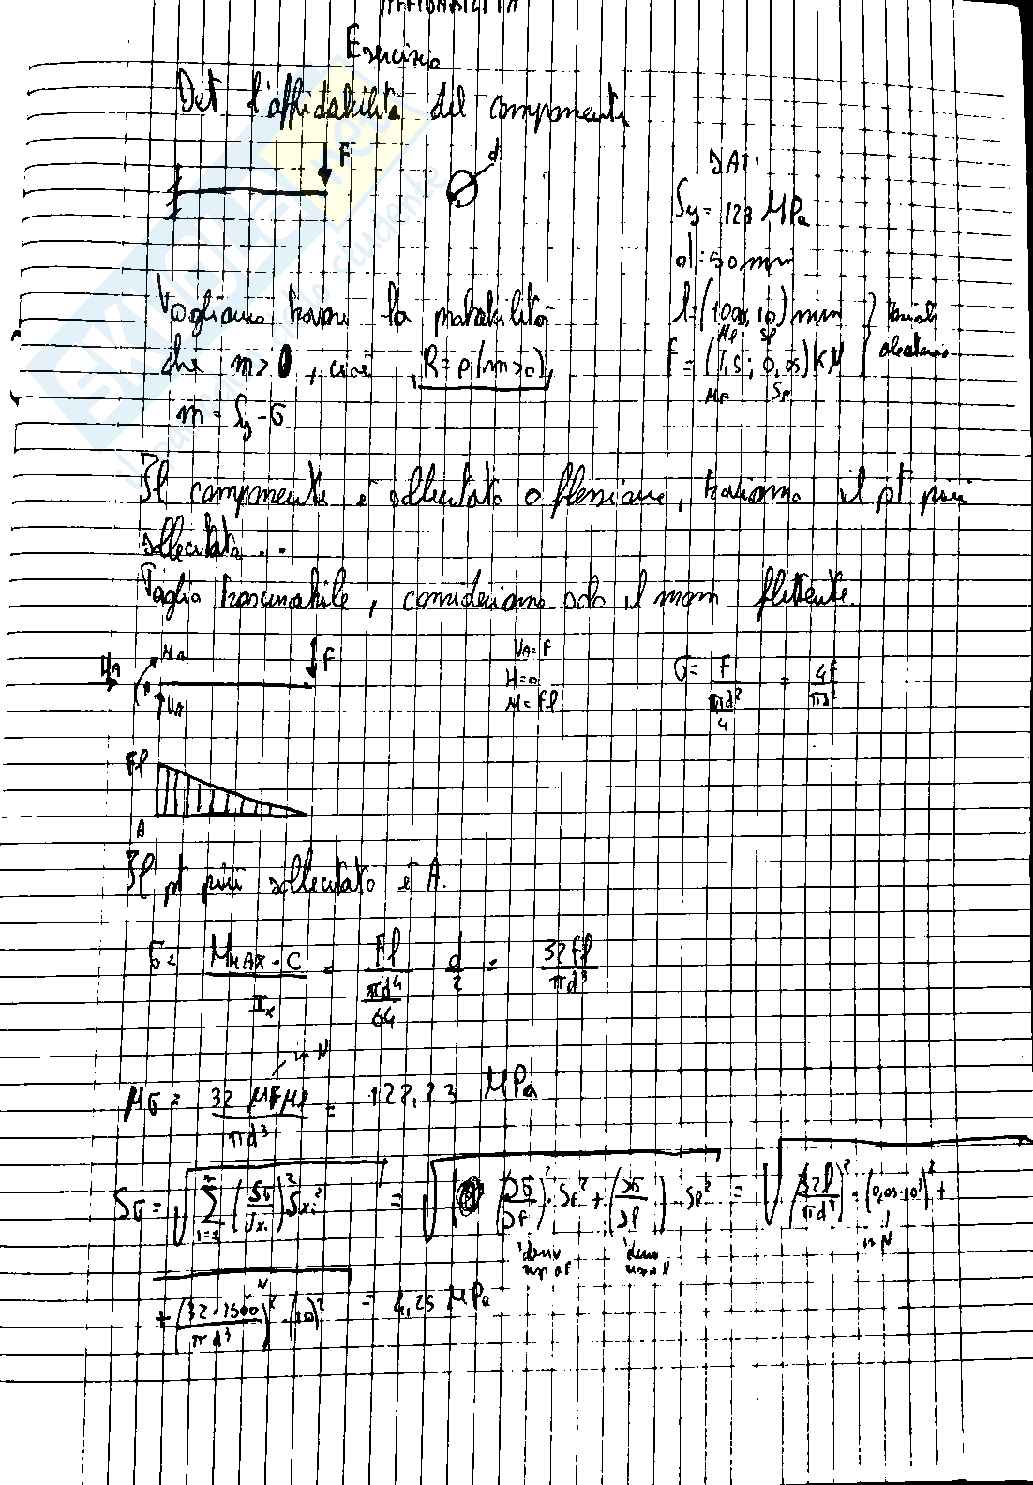 AFFIDABILITÀ
Esercizio
Det l'affidabilità del componente
F
d
DATI
Sy = 128 MPa
d = 50 mm
l = (1000, 10) mm
μl Sl
F = (1,5 ; 0,05) KN
μF SF
Variabili
aleatorie
Vogliamo trovare la probabilità
che m > 0, cioè R = p(m>0),
m = Sy - σ
Il componente è sollecitato a flessione, troviamo il pt più
sollecitato..
Taglio trascurabile, consideriamo solo il mom flettente.
HA MA VA F
VA = F
H = 0
M = Fl
σ = F / (πd²/4) = 4F / πd²
Fl
A
Il pt più sollecitato è A.
σ = MMAX · C / Ix = Fl / (πd⁴/64) d/2 = 32Fl / πd³
in N
μσ = 32 μF μl / πd³ = 122,23 MPa
Sσ = √(∑ i=1 (δσ/δxi)² Sxi²) = √((∂σ/∂F)² · SF² + (∂σ/∂l)² · Sl²) = √((32l/πd³)² · (0,05·10³)² +
deriv risp a F
deriv risp a l
in N
+ (32·1500/πd³)² · (10)² = 4,25 MPa